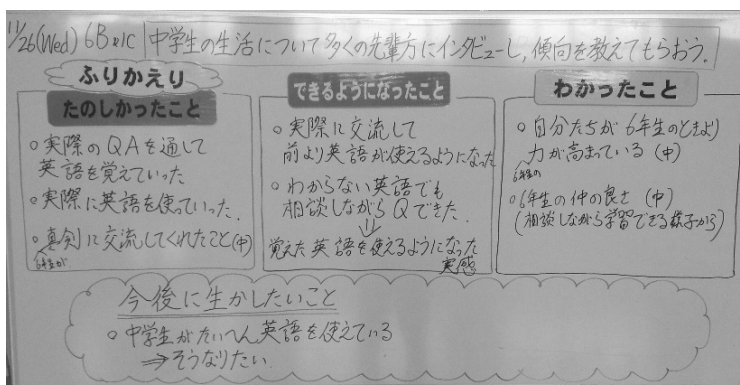 11/26(Wed) 6B×1C 中学生の生活について多くの先輩方にインタビューし,傾向を教えてもらおう.
ふりかえり
たのしかったこと
○実際のQAを通して
英語を覚えていった
○実際に英語を使っていった.
○真剣に交流してくれたこと(中)
6年生が
できるようになったこと
○実際に交流して
前より英語が使えるようになった
○わからない英語でも
相談しながらQできた.
⇓
覚えた英語を使えるようになった
実感
わかったこと
○自分たちが6年生のときより
力が高まっている(中)
6年生の
○6年生の仲の良さ(中)
(相談しながら学習できる様子から)
今後に生かしたいこと
○中学生がたいへん英語を使えている
⇒そうなりたい